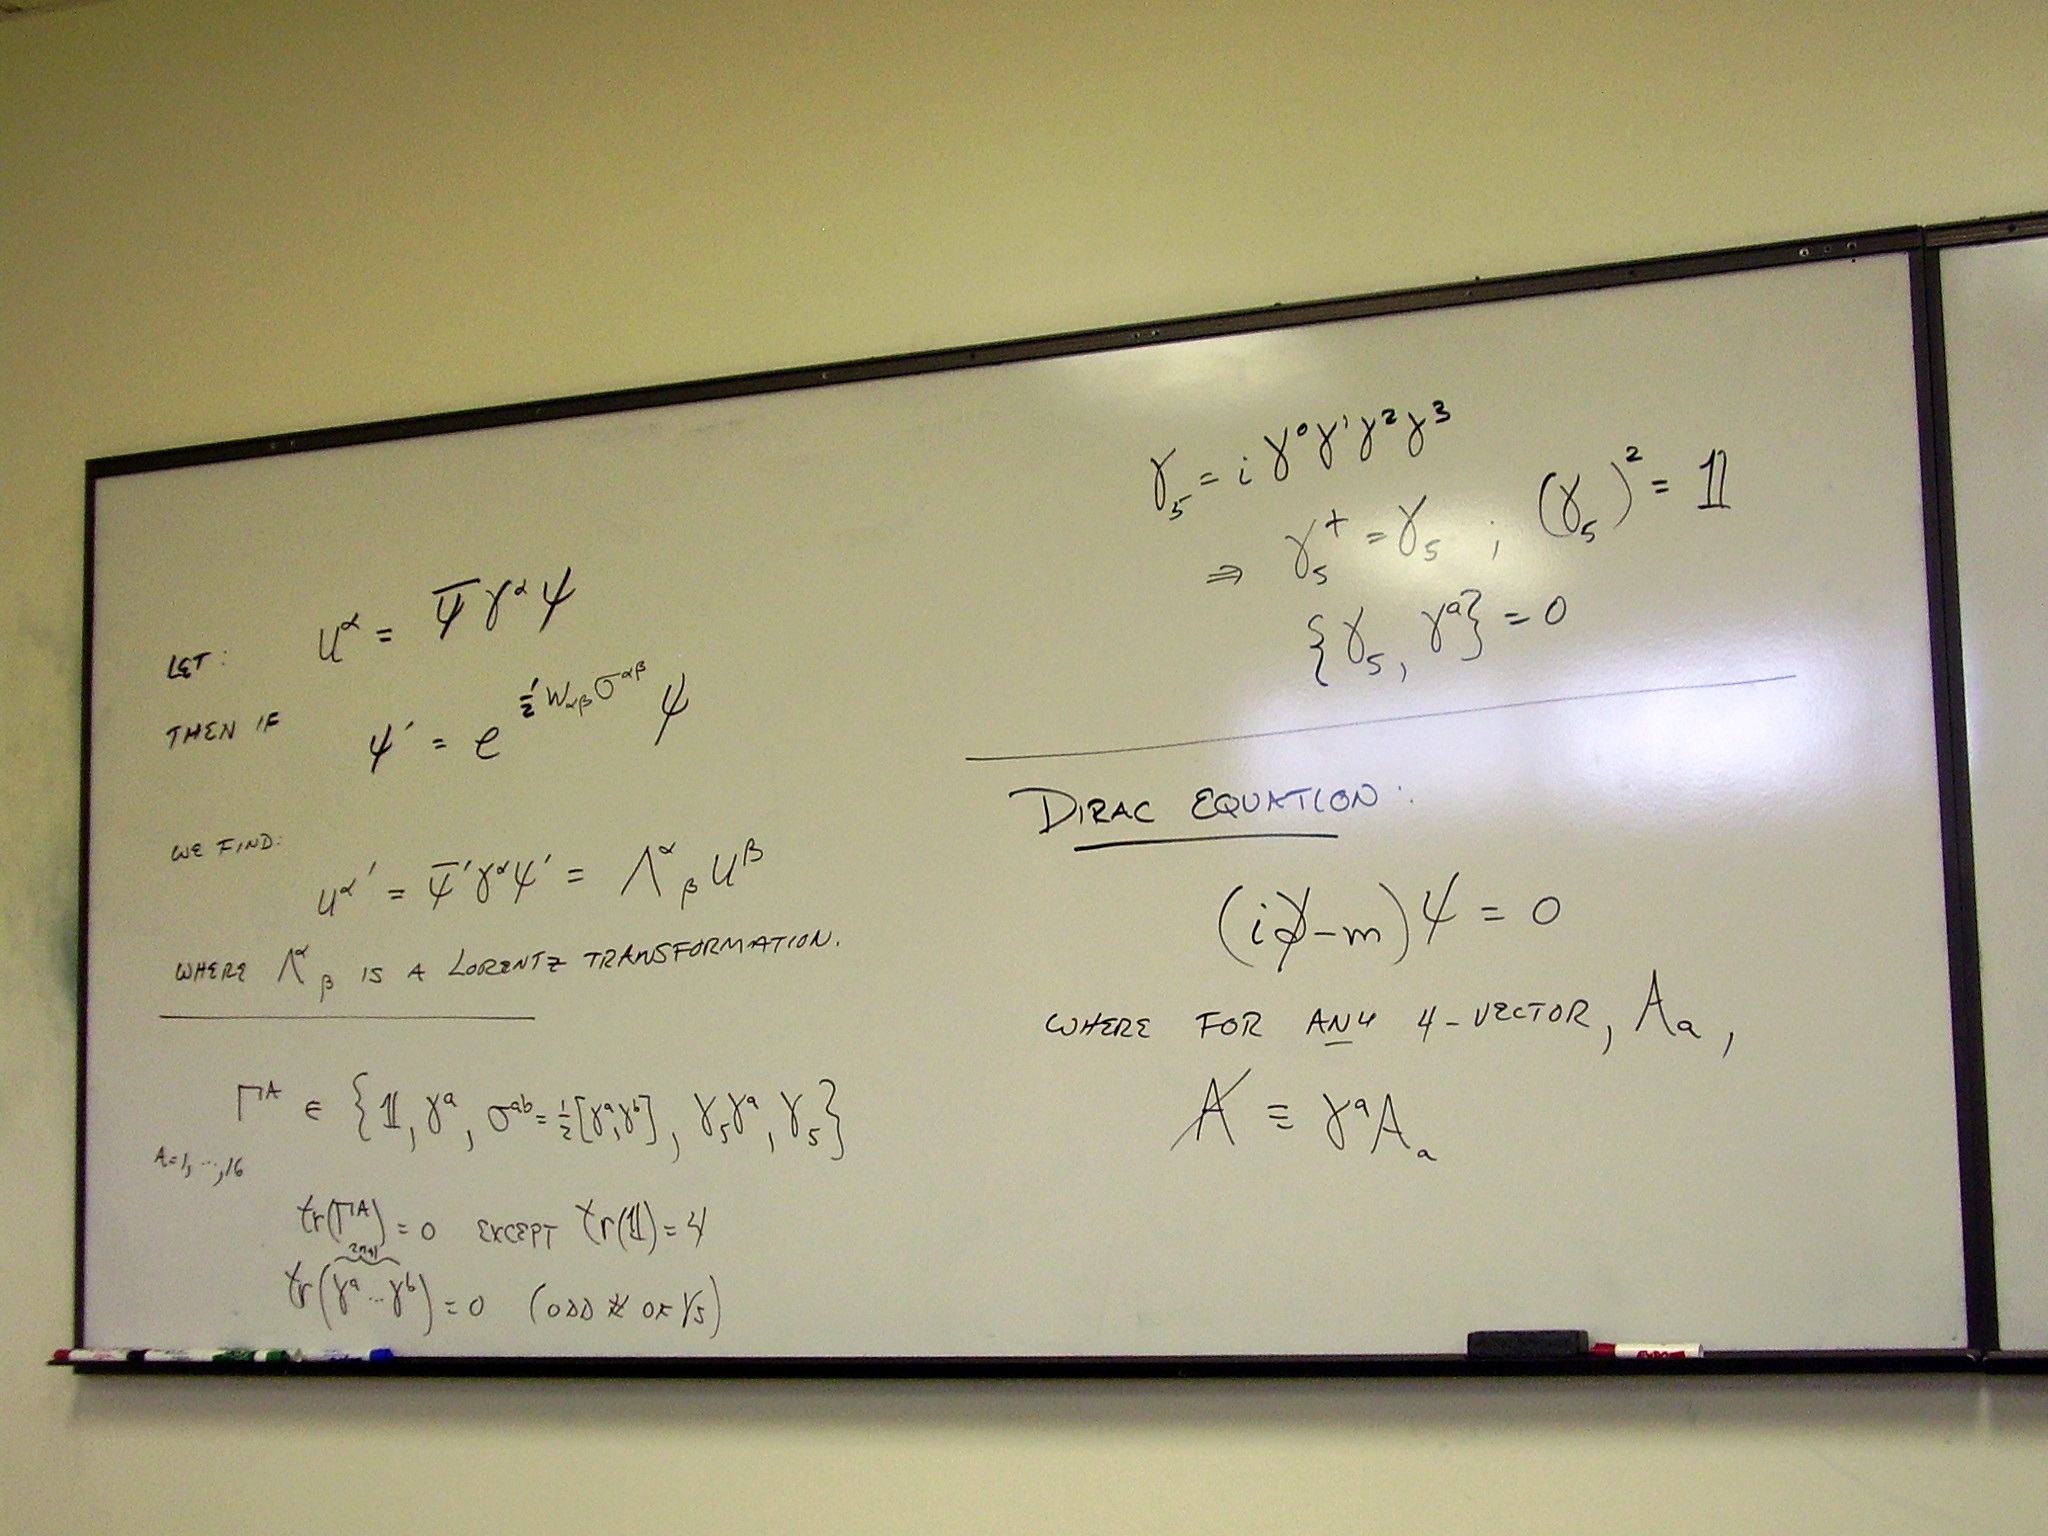 LET: u^α = ψ̄ γ^α ψ
THEN IF ψ′ = e^{½ w_{αβ} σ^{αβ}} ψ
WE FIND:
u^α′ = ψ̄′γ^αψ′ = Λ^α_β u^β
WHERE Λ^α_β IS A LORENTZ TRANSFORMATION.
Γ^A ∈ {𝟙, γ^a, σ^{ab} = ½[γ^a, γ^b], γ_5γ^a, γ_5}
A=1, ..., 16
tr(Γ^A) = 0 EXCEPT tr(𝟙) = 4
2n+1
tr(γ^a ... γ^b) = 0 (ODD # OF γ_5)
γ_5 = i γ^0 γ^1 γ^2 γ^3
⇒ γ_5^+ = γ_5 ; (γ_5)^2 = 𝟙
{γ_5, γ^a} = 0
DIRAC EQUATION:
(i∂̸ - m)ψ = 0
WHERE FOR ANY 4-VECTOR, A_a,
A̸ ≡ γ^a A_a
EXPO